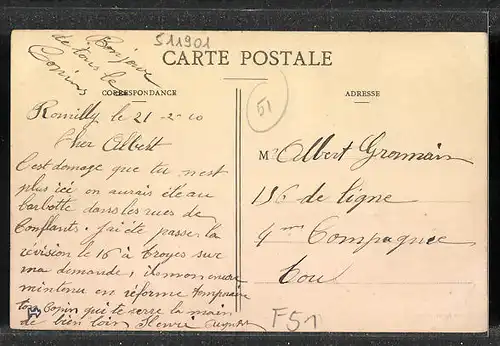 Bonjour
de tous les
Copins
511901
CARTE POSTALE
CORRESPONDANCE
ADRESSE
51
Romilly le 21-2-10
Cher Albert
C'est domage que tu n'est
plus ici on aurais
barbotte dans les rues de
Conflants. J'ai été passer la
révision le 16 à Troyes sur
ma demande, ils mon
mintenu en réforme Temporaire
ton Copin qui te serre la main
de bien loin Henri
Mr Albert Gromain
156 de ligne
4me Compagnee
Toul
F51